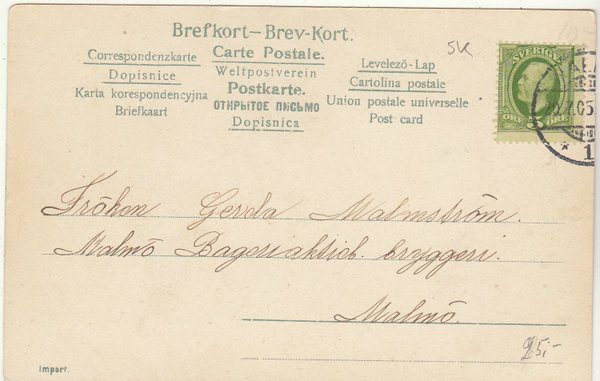 Brefkort–Brev-Kort.
Correspondenzkarte Carte Postale. Levelező-Lap
Dopisnice Weltpostverein Cartolina postale
Karta korespondencyjna Postkarte. Union postale universelle
Briefkaart ОТКРЫТОЕ ПИСЬМО Post card
Dopisnica
SVERIGE
ÖRE ÖRE
05
1
Fröken Gerda Malmström.
Malmö Bageriaktieb. bryggeri.
Malmö.
25:-
Import.